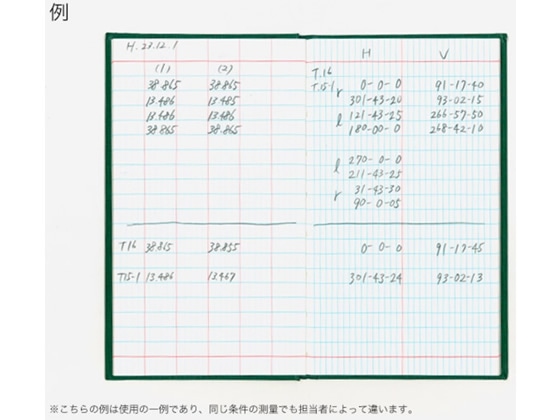 例
H.23.12.1
(1) (2)
38.865 38.865
13.486 13.485
13.486 13.486
38.865 38.865
T16 38.865 38.855
T15-1 13.486 13.467
H V
T.16
T.15-1 r 0-0-0 91-17-40
301-43-20 93-02-15
l 121-43-25 266-57-50
180-00-0 268-42-10
l 270-0-0
211-43-25
r 31-43-30
90-0-05
0-0-0 91-17-45
301-43-24 93-02-13
※こちらの例は使用の一例であり、同じ条件の測量でも担当者によって違います。